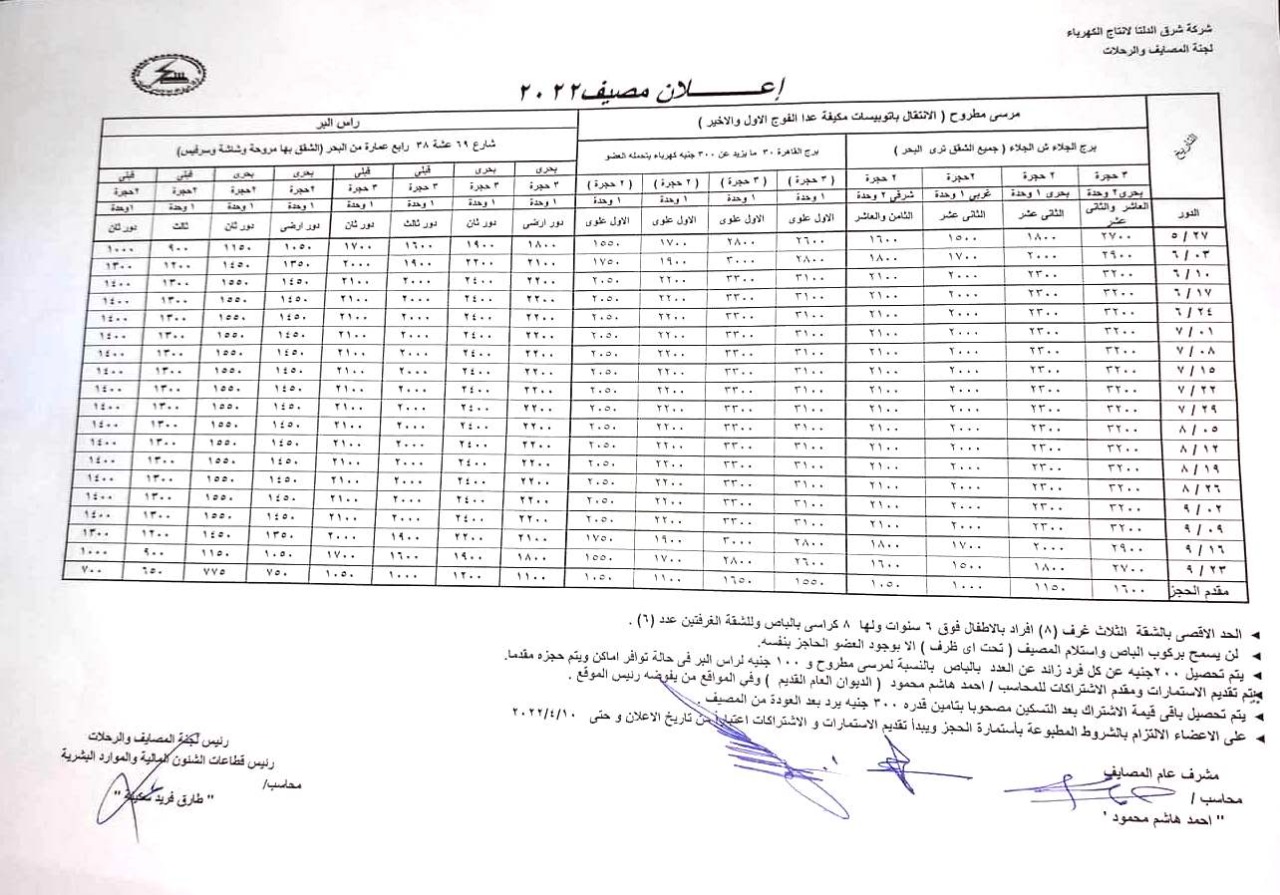 شركة شرق الدلتا لانتاج الكهرباء
لجنة المصايف والرحلات
إعـــــلان مصيف ٢٠٢٢
التاريخ مرسى مطروح ( الانتقال باتوبيسات مكيفة عدا الفوج الاول والاخير ) راس البر
برج الجلاء ش الجلاء ( جميع الشقق ترى البحر ) برج القاهرة ٣٠ ما يزيد عن ٣٠٠ جنيه كهرباء يتحمله العضو شارع ٦٩ عشة ٣٨ رابع عمارة من البحر (الشقق بها مروحة وشاشة وسرفيس)
بحرى بحرى قبلى قبلى بحرى بحرى قبلى قبلى
٣ حجرة ٢ حجرة ٢حجرة ٢ حجرة ( ٣ حجرة ) ( ٣ حجرة ) ( ٢ حجرة ) ( ٢ حجرة ) ٣ حجرة ٣ حجرة ٣ حجرة ٣ حجرة ٢حجرة ٢حجرة ٢حجرة ٢حجرة
بحرى٢ وحدة بحرى ١ وحدة غربى ١ وحدة شرقي ٢ وحدة ١ وحدة ١ وحدة ١ وحدة ١ وحدة ١ وحدة ١ وحدة ١ وحدة ١ وحدة ١ وحدة ١ وحدة ١ وحدة ١وحدة
الدور العاشر والثانى عشر الثانى عشر الثانى عشر الثامن والعاشر الاول علوى الاول علوى الاول علوى الاول علوى دور ارضى دور ثان دور ثالث دور ثان دور ارضى دور ثان ثالث دور ثان
٥ / ٢٧ ٢٧٠٠ ١٨٠٠ ١٥٠٠ ١٦٠٠ ٢٦٠٠ ٢٨٠٠ ١٧٠٠ ١٥٥٠ ١٨٠٠ ١٩٠٠ ١٦٠٠ ١٧٠٠ ١٠٥٠ ١١٥٠ ٩٠٠ ١٠٠٠
٦ / ٠٣ ٢٩٠٠ ٢٠٠٠ ١٧٠٠ ١٨٠٠ ٢٨٠٠ ٣٠٠٠ ١٩٠٠ ١٧٥٠ ٢١٠٠ ٢٢٠٠ ١٩٠٠ ٢٠٠٠ ١٣٥٠ ١٤٥٠ ١٢٠٠ ١٣٠٠
٦ / ١٠ ٣٢٠٠ ٢٣٠٠ ٢٠٠٠ ٢١٠٠ ٣١٠٠ ٣٣٠٠ ٢٢٠٠ ٢٠٥٠ ٢٢٠٠ ٢٤٠٠ ٢٠٠٠ ٢١٠٠ ١٤٥٠ ١٥٥٠ ١٣٠٠ ١٤٠٠
٦ / ١٧ ٣٢٠٠ ٢٣٠٠ ٢٠٠٠ ٢١٠٠ ٣١٠٠ ٣٣٠٠ ٢٢٠٠ ٢٠٥٠ ٢٢٠٠ ٢٤٠٠ ٢٠٠٠ ٢١٠٠ ١٤٥٠ ١٥٥٠ ١٣٠٠ ١٤٠٠
٦ / ٢٤ ٣٢٠٠ ٢٣٠٠ ٢٠٠٠ ٢١٠٠ ٣١٠٠ ٣٣٠٠ ٢٢٠٠ ٢٠٥٠ ٢٢٠٠ ٢٤٠٠ ٢٠٠٠ ٢١٠٠ ١٤٥٠ ١٥٥٠ ١٣٠٠ ١٤٠٠
٧ / ٠١ ٣٢٠٠ ٢٣٠٠ ٢٠٠٠ ٢١٠٠ ٣١٠٠ ٣٣٠٠ ٢٢٠٠ ٢٠٥٠ ٢٢٠٠ ٢٤٠٠ ٢٠٠٠ ٢١٠٠ ١٤٥٠ ١٥٥٠ ١٣٠٠ ١٤٠٠
٧ / ٠٨ ٣٢٠٠ ٢٣٠٠ ٢٠٠٠ ٢١٠٠ ٣١٠٠ ٣٣٠٠ ٢٢٠٠ ٢٠٥٠ ٢٢٠٠ ٢٤٠٠ ٢٠٠٠ ٢١٠٠ ١٤٥٠ ١٥٥٠ ١٣٠٠ ١٤٠٠
٧ / ١٥ ٣٢٠٠ ٢٣٠٠ ٢٠٠٠ ٢١٠٠ ٣١٠٠ ٣٣٠٠ ٢٢٠٠ ٢٠٥٠ ٢٢٠٠ ٢٤٠٠ ٢٠٠٠ ٢١٠٠ ١٤٥٠ ١٥٥٠ ١٣٠٠ ١٤٠٠
٧ / ٢٢ ٣٢٠٠ ٢٣٠٠ ٢٠٠٠ ٢١٠٠ ٣١٠٠ ٣٣٠٠ ٢٢٠٠ ٢٠٥٠ ٢٢٠٠ ٢٤٠٠ ٢٠٠٠ ٢١٠٠ ١٤٥٠ ١٥٥٠ ١٣٠٠ ١٤٠٠
٧ / ٢٩ ٣٢٠٠ ٢٣٠٠ ٢٠٠٠ ٢١٠٠ ٣١٠٠ ٣٣٠٠ ٢٢٠٠ ٢٠٥٠ ٢٢٠٠ ٢٤٠٠ ٢٠٠٠ ٢١٠٠ ١٤٥٠ ١٥٥٠ ١٣٠٠ ١٤٠٠
٨ / ٠٥ ٣٢٠٠ ٢٣٠٠ ٢٠٠٠ ٢١٠٠ ٣١٠٠ ٣٣٠٠ ٢٢٠٠ ٢٠٥٠ ٢٢٠٠ ٢٤٠٠ ٢٠٠٠ ٢١٠٠ ١٤٥٠ ١٥٥٠ ١٣٠٠ ١٤٠٠
٨ / ١٢ ٣٢٠٠ ٢٣٠٠ ٢٠٠٠ ٢١٠٠ ٣١٠٠ ٣٣٠٠ ٢٢٠٠ ٢٠٥٠ ٢٢٠٠ ٢٤٠٠ ٢٠٠٠ ٢١٠٠ ١٤٥٠ ١٥٥٠ ١٣٠٠ ١٤٠٠
٨ / ١٩ ٣٢٠٠ ٢٣٠٠ ٢٠٠٠ ٢١٠٠ ٣١٠٠ ٣٣٠٠ ٢٢٠٠ ٢٠٥٠ ٢٢٠٠ ٢٤٠٠ ٢٠٠٠ ٢١٠٠ ١٤٥٠ ١٥٥٠ ١٣٠٠ ١٤٠٠
٨ / ٢٦ ٣٢٠٠ ٢٣٠٠ ٢٠٠٠ ٢١٠٠ ٣١٠٠ ٣٣٠٠ ٢٢٠٠ ٢٠٥٠ ٢٢٠٠ ٢٤٠٠ ٢٠٠٠ ٢١٠٠ ١٤٥٠ ١٥٥٠ ١٣٠٠ ١٤٠٠
٩ / ٠٢ ٣٢٠٠ ٢٣٠٠ ٢٠٠٠ ٢١٠٠ ٣١٠٠ ٣٣٠٠ ٢٢٠٠ ٢٠٥٠ ٢٢٠٠ ٢٤٠٠ ٢٠٠٠ ٢١٠٠ ١٤٥٠ ١٥٥٠ ١٣٠٠ ١٤٠٠
٩ / ٠٩ ٣٢٠٠ ٢٣٠٠ ٢٠٠٠ ٢١٠٠ ٣١٠٠ ٣٣٠٠ ٢٢٠٠ ٢٠٥٠ ٢٢٠٠ ٢٤٠٠ ٢٠٠٠ ٢١٠٠ ١٤٥٠ ١٥٥٠ ١٣٠٠ ١٤٠٠
٩ / ١٦ ٢٩٠٠ ٢٠٠٠ ١٧٠٠ ١٨٠٠ ٢٨٠٠ ٣٠٠٠ ١٩٠٠ ١٧٥٠ ٢١٠٠ ٢٢٠٠ ١٩٠٠ ٢٠٠٠ ١٣٥٠ ١٤٥٠ ١٢٠٠ ١٣٠٠
٩ / ٢٣ ٢٧٠٠ ١٨٠٠ ١٥٠٠ ١٦٠٠ ٢٦٠٠ ٢٨٠٠ ١٧٠٠ ١٥٥٠ ١٨٠٠ ١٩٠٠ ١٦٠٠ ١٧٠٠ ١٠٥٠ ١١٥٠ ٩٠٠ ١٠٠٠
مقدم الحجز ١٦٠٠ ١١٥٠ ١٠٠٠ ١٠٥٠ ١٥٥٠ ١٦٥٠ ١١٠٠ ١٠٥٠ ١١٠٠ ١٢٠٠ ١٠٠٠ ١٠٥٠ ٧٥٠ ٧٧٥ ٦٥٠ ٧٠٠
الحد الاقصى بالشقة الثلاث غرف (٨) افراد بالاطفال فوق ٦ سنوات ولها ٨ كراسى بالباص وللشقة الغرفتين عدد (٦) .
لن يسمح بركوب الباص واستلام المصيف ( تحت اى ظرف ) الا بوجود العضو الحاجز بنفسه.
يتم تحصيل ٢٠٠جنيه عن كل فرد زائد عن العدد بالباص بالنسبة لمرسى مطروح و ١٠٠ جنيه لراس البر فى حالة توافر اماكن ويتم حجزه مقدما.
يتم تقديم الاستمارات ومقدم الاشتراكات للمحاسب / احمد هاشم محمود ( الديوان العام القديم ) وفي المواقع من يفوضه رئيس الموقع .
يتم تحصيل باقى قيمة الاشتراك بعد التسكين مصحوبا بتامين قدره ٣٠٠ جنيه يرد بعد العودة من المصيف .
على الاعضاء الالتزام بالشروط المطبوعة بأستمارة الحجز ويبدأ تقديم الاستمارات و الاشتراكات اعتبارا من تاريخ الاعلان و حتى ٢٠٢٢/٤/١٠
مشرف عام المصايف
محاسب /
" احمد هاشم محمود '
رئيس لجنة المصايف والرحلات
رئيس قطاعات الشئون المالية والموارد البشرية
محاسب/
" طارق فريد "